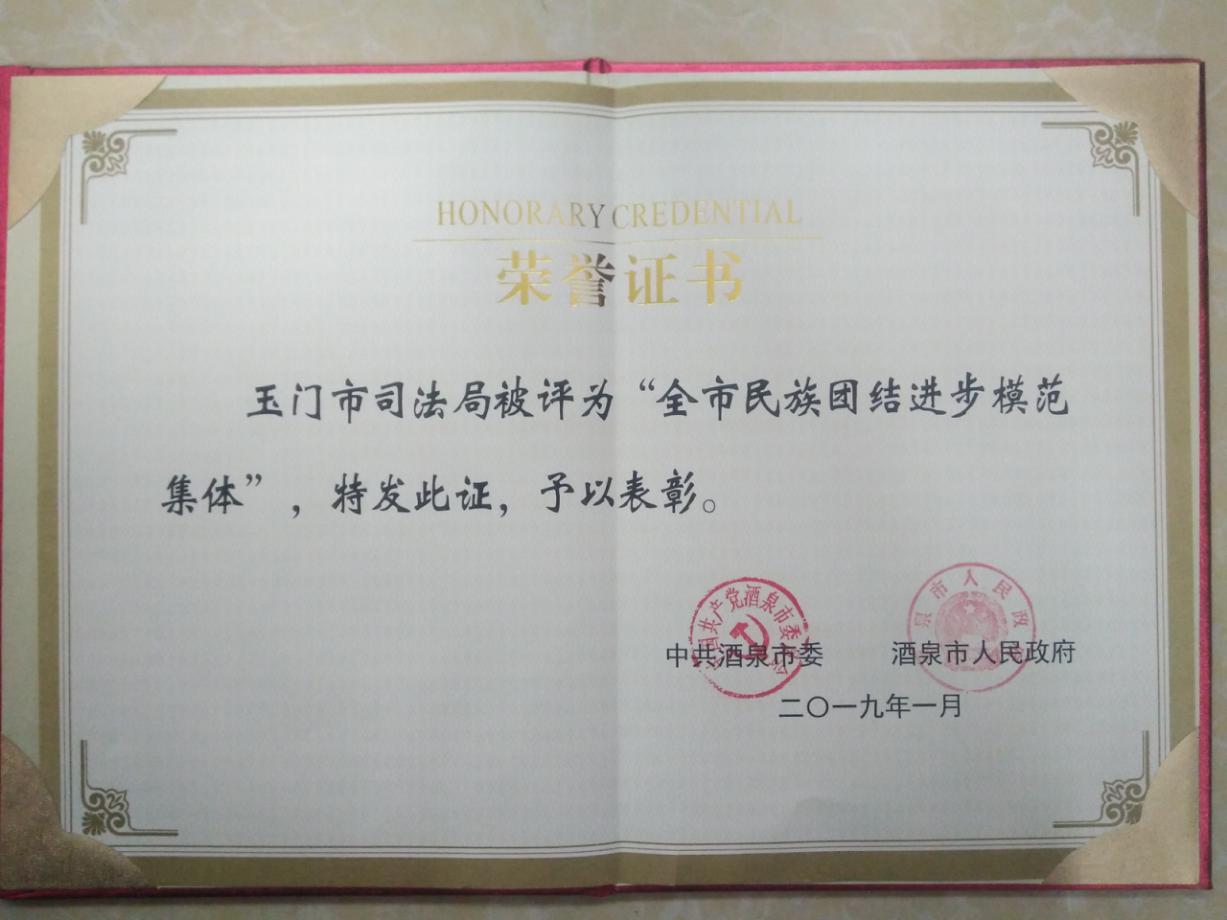 HONORARY CREDENTIAL
荣誉证书
玉门市司法局被评为“全市民族团结进步模范
集体”，特发此证，予以表彰。
中国共产党酒泉市委员会
泉市人民政
中共酒泉市委 酒泉市人民政府
二〇一九年一月